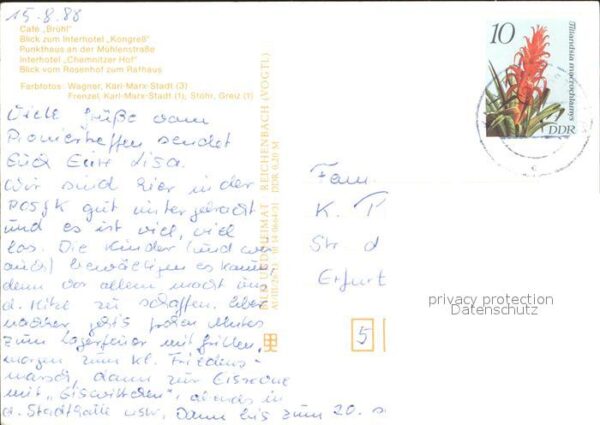 15.8.88
Café „Brühl"
Blick zum Interhotel „Kongreß"
Punkthaus an der Mühlenstraße
Interhotel „Chemnitzer Hof"
Blick vom Rosenhof zum Rathaus
Farbfotos: Wagner, Karl-Marx-Stadt (3)
Frenzel, Karl-Marx-Stadt (1); Stöhr, Greiz (1)
Viele Grüße vom
Pioniertreffen sendet
Euch Eure Lisa.
Wir sind hier in der
gut untergebracht
und es ist viel, viel
los. Die Kinder (und wir
auch) bewältigen es kaum,
denn vor allem macht uns
d. Hitze zu schaffen. Aber
nachher geht's frohen Mutes
zum Lagerfeuer mit Grillen,
morgen zum kl. Friedens-
marsch, dann zur Eisrevue
mit „ ", abends in
d. Stadthalle usw. Dann bis zum 20.
BILD UND HEIMAT REICHENBACH (VOGTL)
DDR 0,20 M
10
Tillandsia macrochlamys
DDR
Fam.
K. P
Str. d
Erfurt
5
privacy protection
Datenschutz